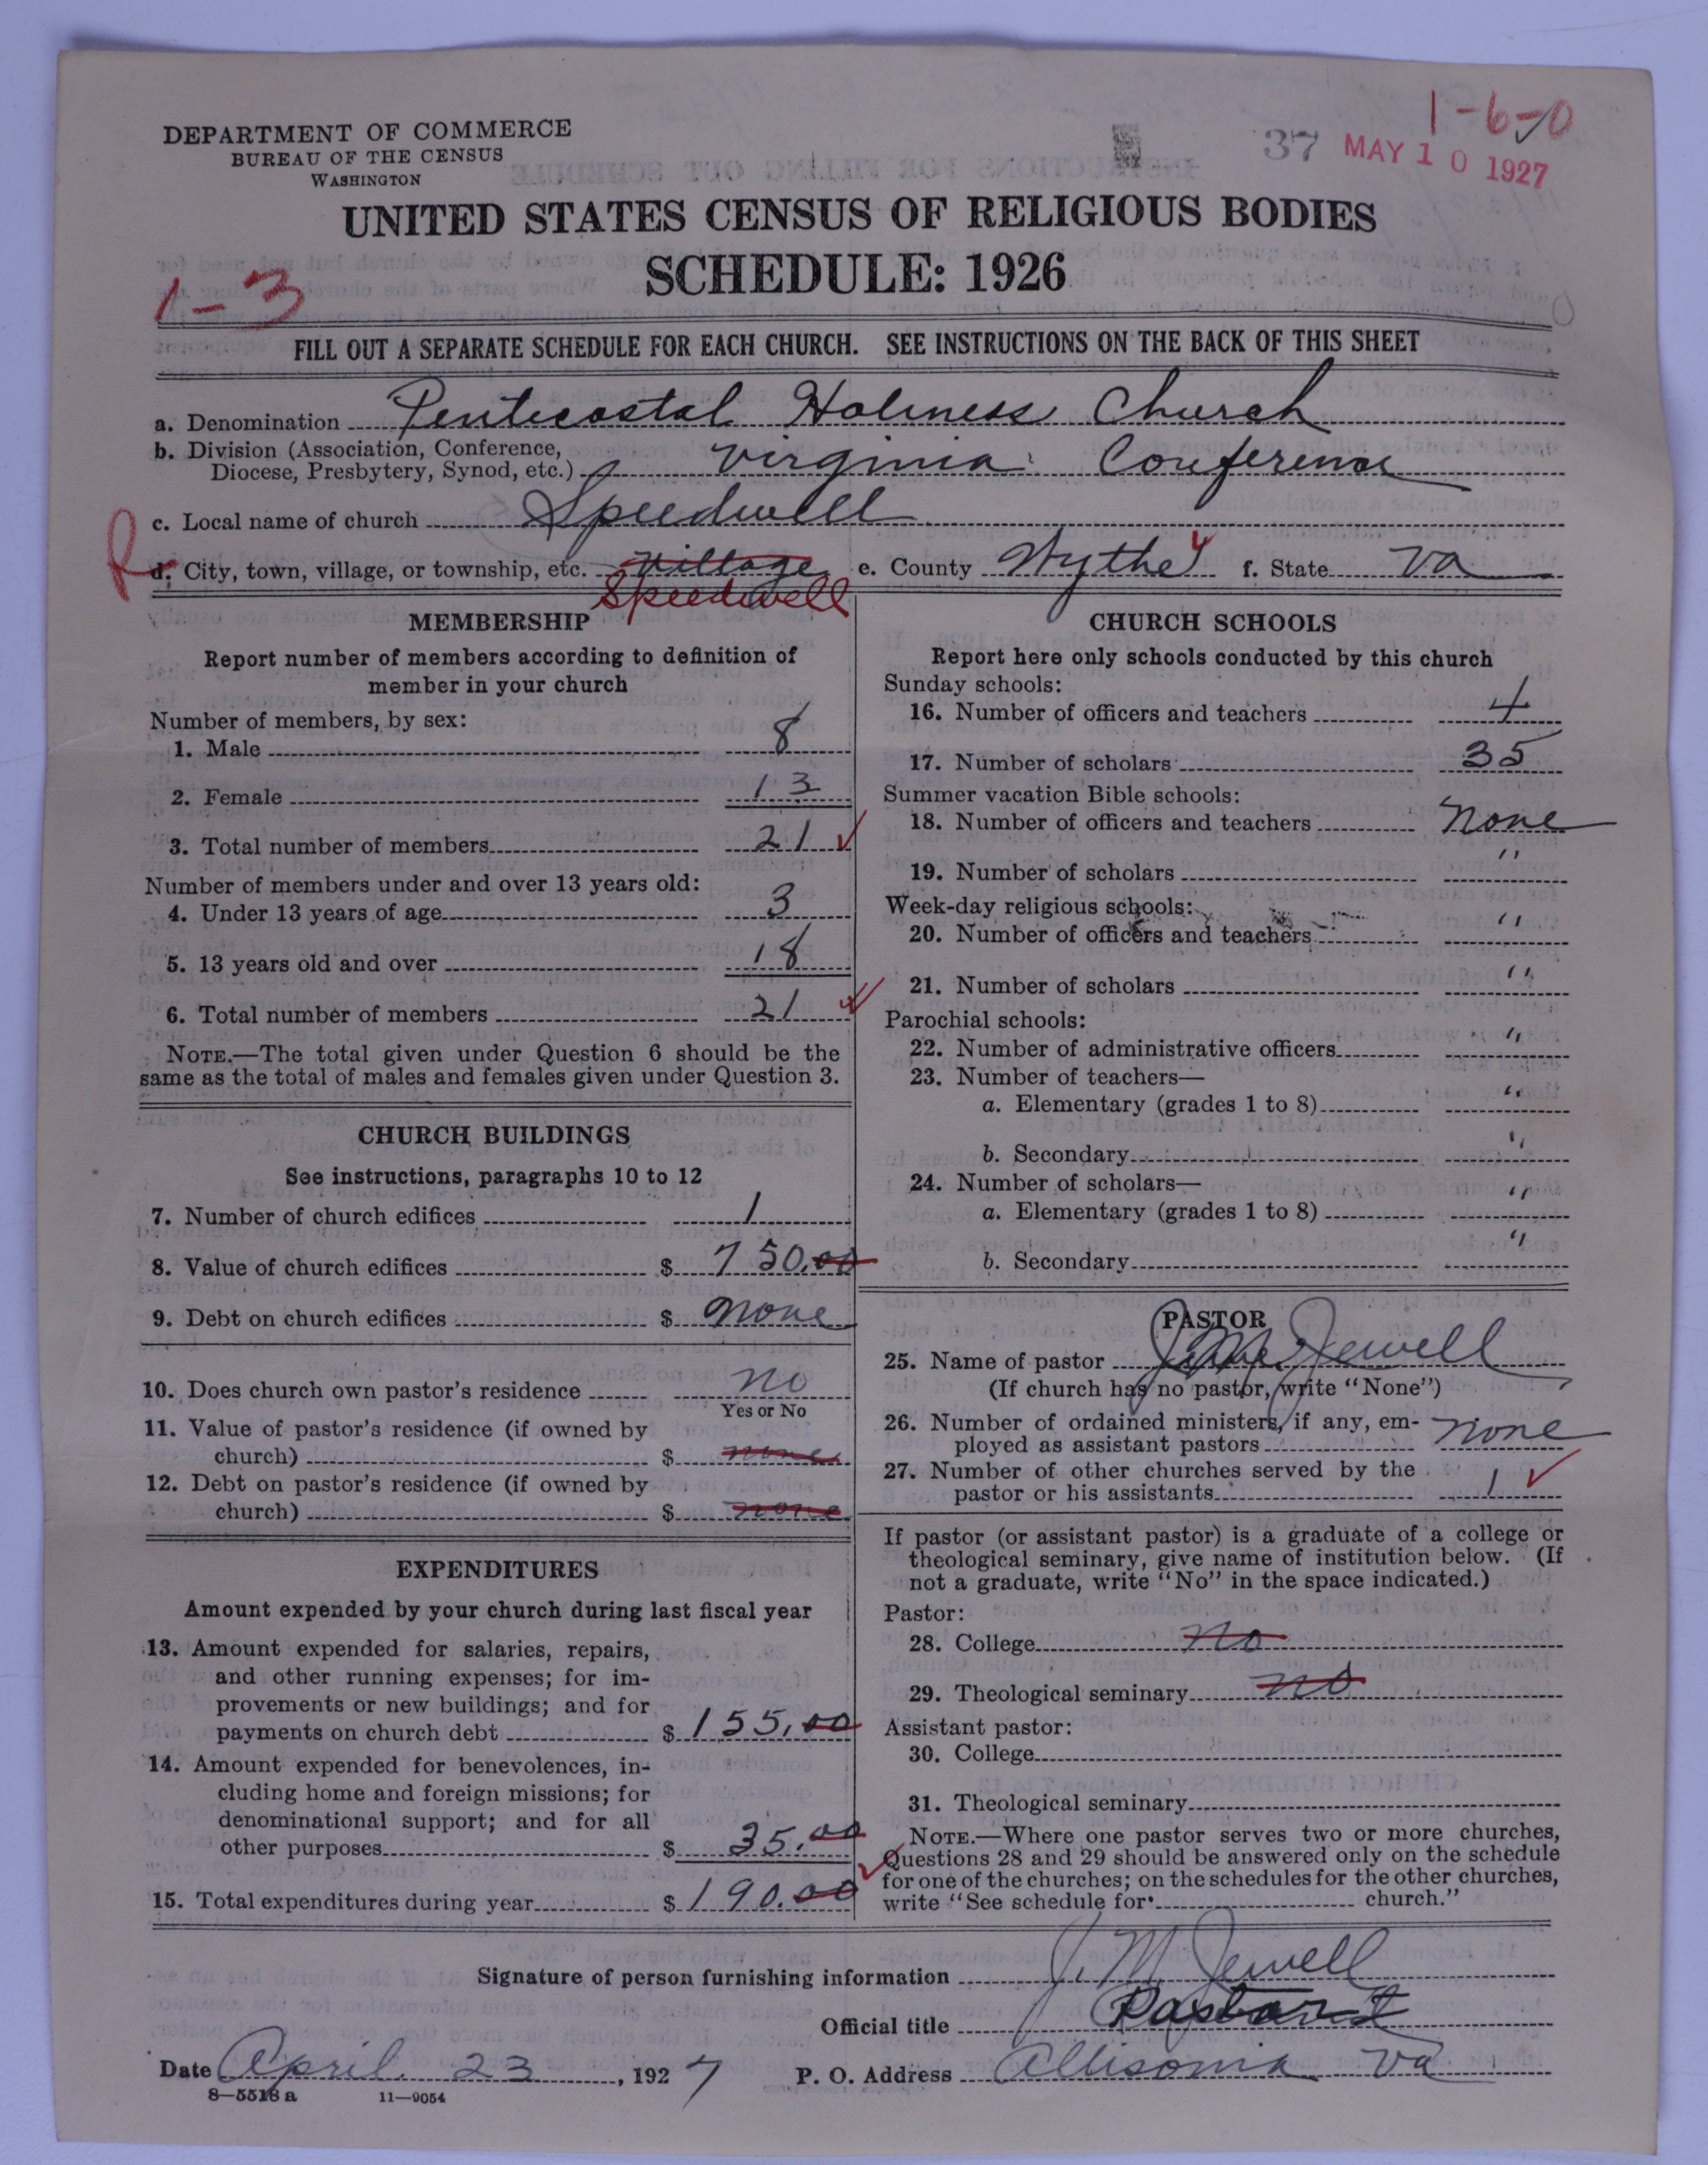 1-6-0
DEPARTMENT OF COMMERCE
BUREAU OF THE CENSUS
WASHINGTON
37 MAY 10 1927
UNITED STATES CENSUS OF RELIGIOUS BODIES
SCHEDULE: 1926
1-3
FILL OUT A SEPARATE SCHEDULE FOR EACH CHURCH. SEE INSTRUCTIONS ON THE BACK OF THIS SHEET
a. Denomination Pentecostal Holiness Church
b. Division (Association, Conference,
Diocese, Presbytery, Synod, etc.) Virginia Conference
c. Local name of church Speedwell
R
d. City, town, village, or township, etc. Village e. County Wythe f. State Va
Speedwell
MEMBERSHIP
Report number of members according to definition of
member in your church
Number of members, by sex:
1. Male 8
2. Female 13
3. Total number of members 21
Number of members under and over 13 years old:
4. Under 13 years of age 3
5. 13 years old and over 18
6. Total number of members 21
NOTE.—The total given under Question 6 should be the
same as the total of males and females given under Question 3.
CHURCH BUILDINGS
See instructions, paragraphs 10 to 12
7. Number of church edifices 1
8. Value of church edifices $ 750.00
9. Debt on church edifices $ none
10. Does church own pastor's residence no
Yes or No
11. Value of pastor's residence (if owned by
church) $ none
12. Debt on pastor's residence (if owned by
church) $ none
EXPENDITURES
Amount expended by your church during last fiscal year
13. Amount expended for salaries, repairs,
and other running expenses; for im-
provements or new buildings; and for
payments on church debt $ 155.00
14. Amount expended for benevolences, in-
cluding home and foreign missions; for
denominational support; and for all
other purposes $ 35.00
15. Total expenditures during year $ 190.00
CHURCH SCHOOLS
Report here only schools conducted by this church
Sunday schools:
16. Number of officers and teachers 4
17. Number of scholars 35
Summer vacation Bible schools:
18. Number of officers and teachers none
19. Number of scholars "
Week-day religious schools:
20. Number of officers and teachers "
21. Number of scholars "
Parochial schools:
22. Number of administrative officers "
23. Number of teachers—
a. Elementary (grades 1 to 8) "
b. Secondary "
24. Number of scholars—
a. Elementary (grades 1 to 8) "
b. Secondary "
PASTOR
25. Name of pastor J. M. Jewell
(If church has no pastor, write "None")
26. Number of ordained ministers, if any, em-
ployed as assistant pastors none
27. Number of other churches served by the
pastor or his assistants 1
If pastor (or assistant pastor) is a graduate of a college or
theological seminary, give name of institution below. (If
not a graduate, write "No" in the space indicated.)
Pastor:
28. College no
29. Theological seminary no
Assistant pastor:
30. College
31. Theological seminary
NOTE.—Where one pastor serves two or more churches,
Questions 28 and 29 should be answered only on the schedule
for one of the churches; on the schedules for the other churches,
write "See schedule for church."
Signature of person furnishing information J. M. Jewell
Official title Pastor
Date April 23, 1927 P. O. Address Allisonia Va
8—5518 a 11—9054